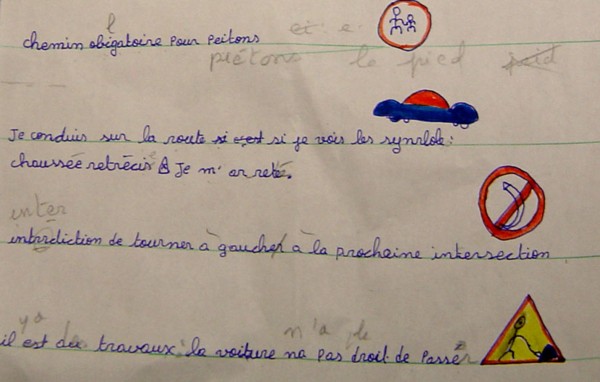 l ei e
chemin obigatoire pour peitons
piétons le pied
Je conduis sur la route si je vois les
chaussée retrécis Je m'
inter
de tourner à gaucher à la prochaine intersection
y a n'a de
il est des travaux la voiture na pas droit de passer